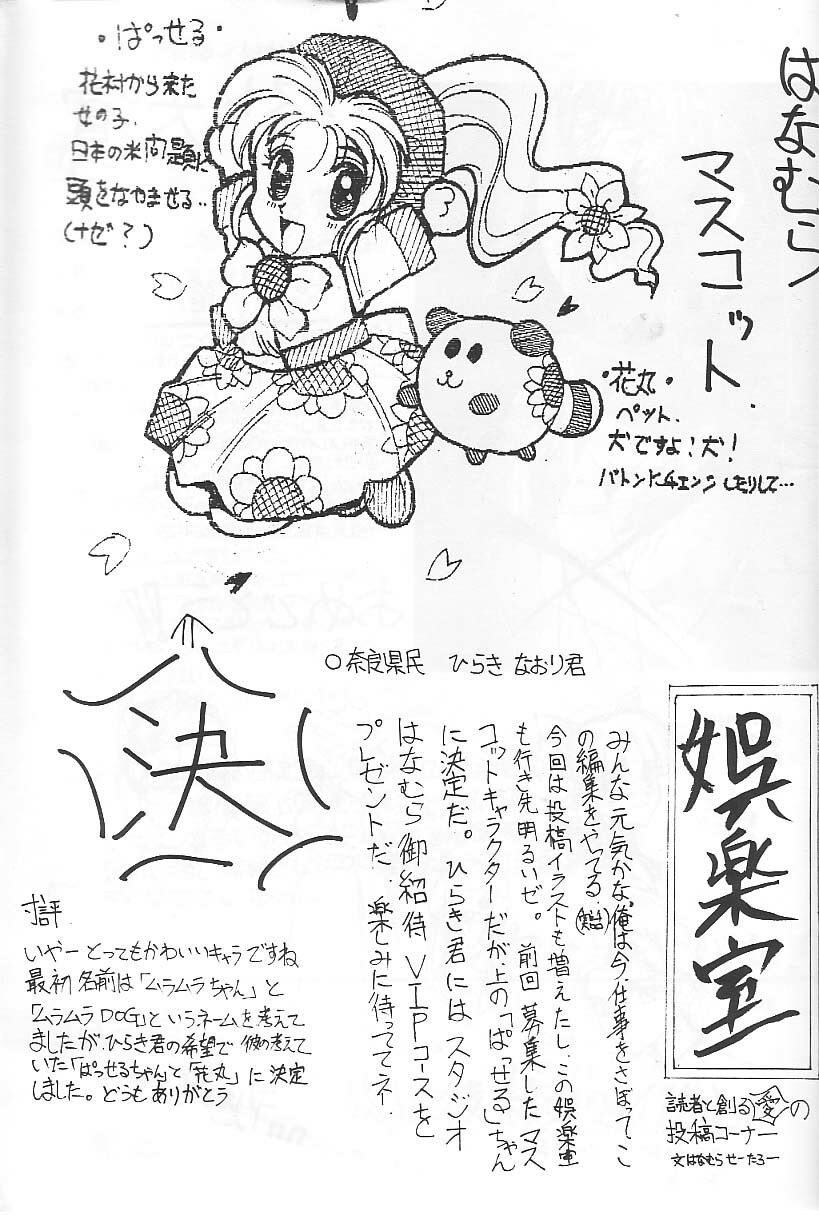 はなむら
マスコット
・ぱっせる・
花村から来た
女の子.
日本の米問題に
頭をなやませる..
(ナゼ?)
・花丸・
ペット.
犬ですよ!犬!
バトンにチェンジしたりして…
決
○奈良県民 ひらき なおり君
娯楽室
読者と創る愛の
投稿コーナー
文はなむらせーたろー
みんな元気かな、俺は今、仕事をさぼってこ
の編集をやってる
今回は投稿イラストも増えたし、この娯楽室
も行き先明るいぜ。前回募集したマス
コットキャラクターだが、上の「ぱっせる」ちゃん
に決定だ。ひらき君にはスタジオ
はなむら御紹待VIPコースを
プレゼントだ.楽しみに待っててネ.
寸評
いやーとってもかわいいキャラですね
最初名前は「ムラムラちゃん」と
「ムラムラDOG」というネームを考えて
ましたが、ひらき君の希望で彼の考えて
いた「ぱっせるちゃん」と「花丸」に決定
しました。どうもありがとう